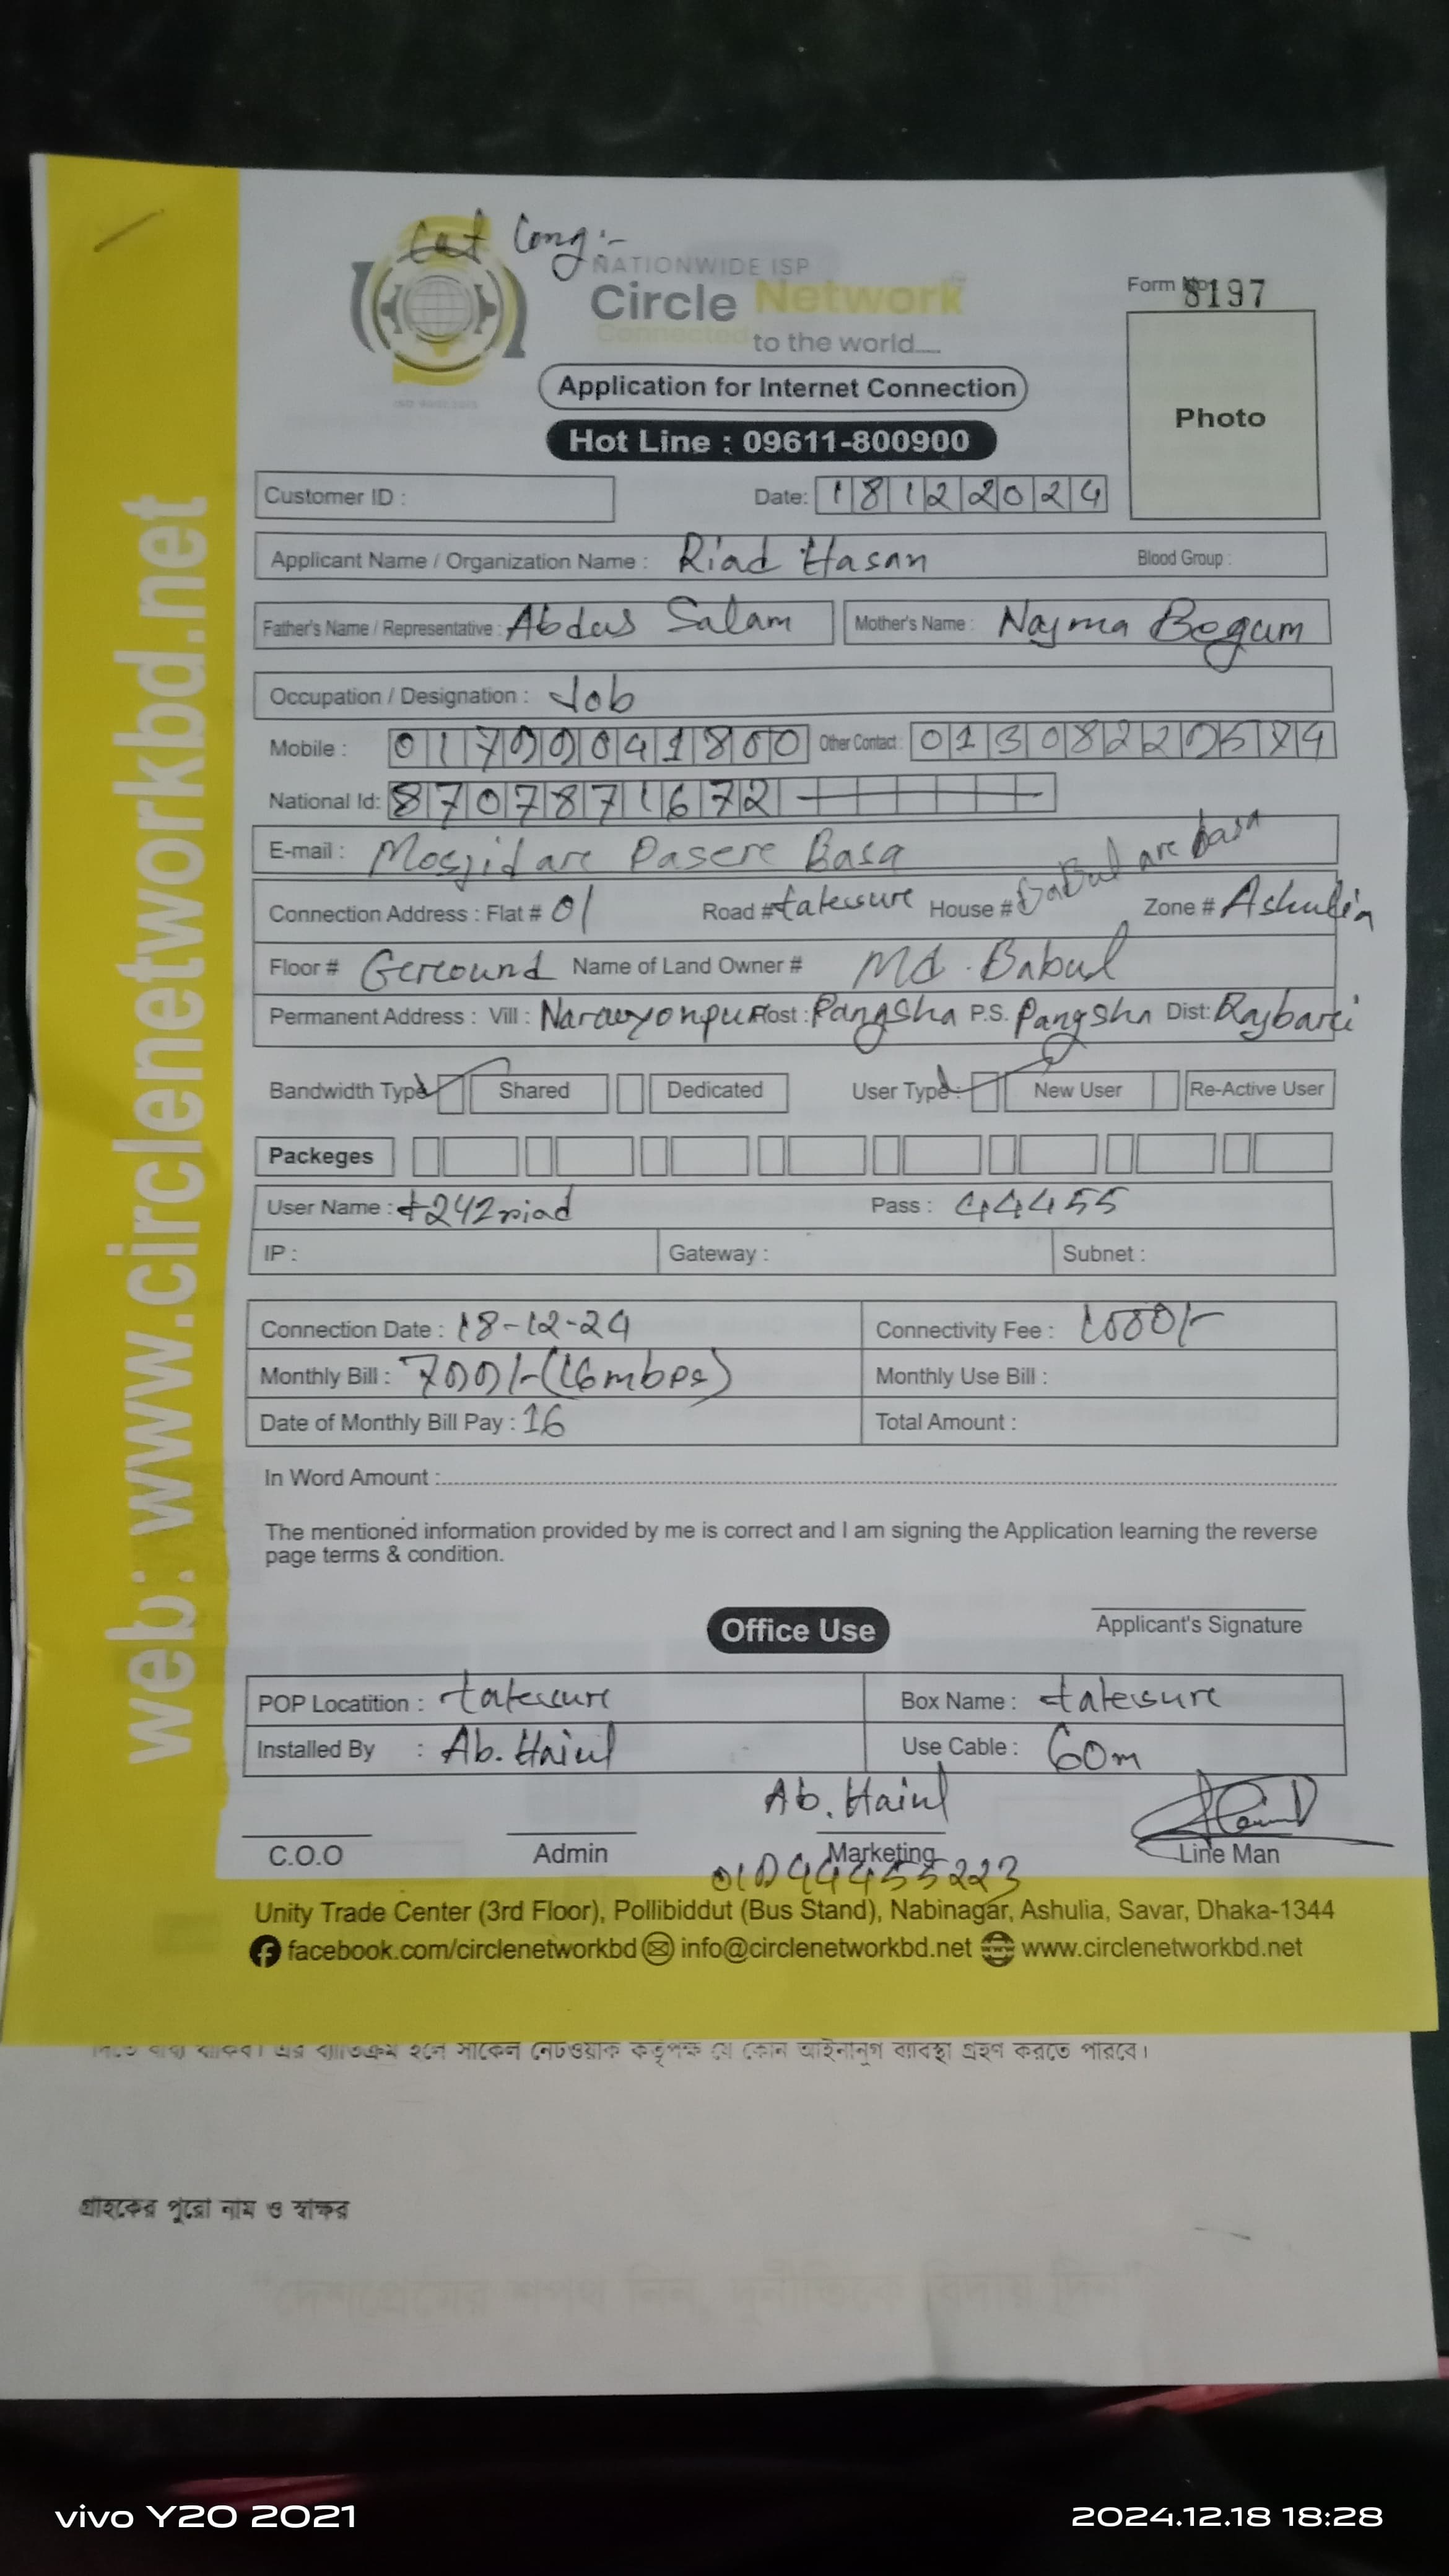 Cat Cong:-
NATIONWIDE ISP
Circle Network
Connected
to the world....
Form No 8197
Photo
Application for Internet Connection
Hot Line : 09611-800900
Customer ID :
Date: 18122024
Applicant Name / Organization Name : Riad Hasan Blood Group :
Father's Name / Representative : Abdus Salam Mother's Name : Najma Begum
Occupation / Designation : Job
Mobile : 01700041800 Other Contact :
National Id: 8707871672
E-mail : Mosjid are Pasere Basa
Connection Address : Flat # 01 Road # House # Babul are basa Zone # Ashulia
Floor # Gercound Name of Land Owner # Md. Babul
Permanent Address : Vill : Naraeyonpur Post : Pangsha P.S. Pangsha Dist: Rajbari
Bandwidth Type : Shared Dedicated User Type : New User Re-Active User
Packeges
User Name : t242riad Pass : 44455
IP : Gateway : Subnet :
Connection Date : 18-12-24 Connectivity Fee : 1000/-
Monthly Bill : 700/-(16mbps) Monthly Use Bill :
Date of Monthly Bill Pay : 16 Total Amount :
In Word Amount :
The mentioned information provided by me is correct and I am signing the Application learning the reverse
page terms & condition.
Applicant's Signature
Office Use
POP Locatition : Box Name :
Installed By : Ab. Hainl Use Cable : 60m
Ab. Hainl
C.O.O Admin Marketing Line Man
Unity Trade Center (3rd Floor), Pollibiddut (Bus Stand), Nabinagar, Ashulia, Savar, Dhaka-1344
facebook.com/circlenetworkbd info@circlenetworkbd.net www.circlenetworkbd.net
web: www.circlenetworkbd.net
দিতে বাধ্য থাকিব। এর ব্যতিক্রম হলে সার্কেল নেটওয়ার্ক কর্তৃপক্ষ যে কোন আইনানুগ ব্যবস্থা গ্রহণ করতে পারবে।
গ্রাহকের পুরো নাম ও স্বাক্ষর
"দেশপ্রেমের শপথ নিন, দুর্নীতিকে বিদায় দিন"
vivo Y20 2021
2024.12.18 18:28